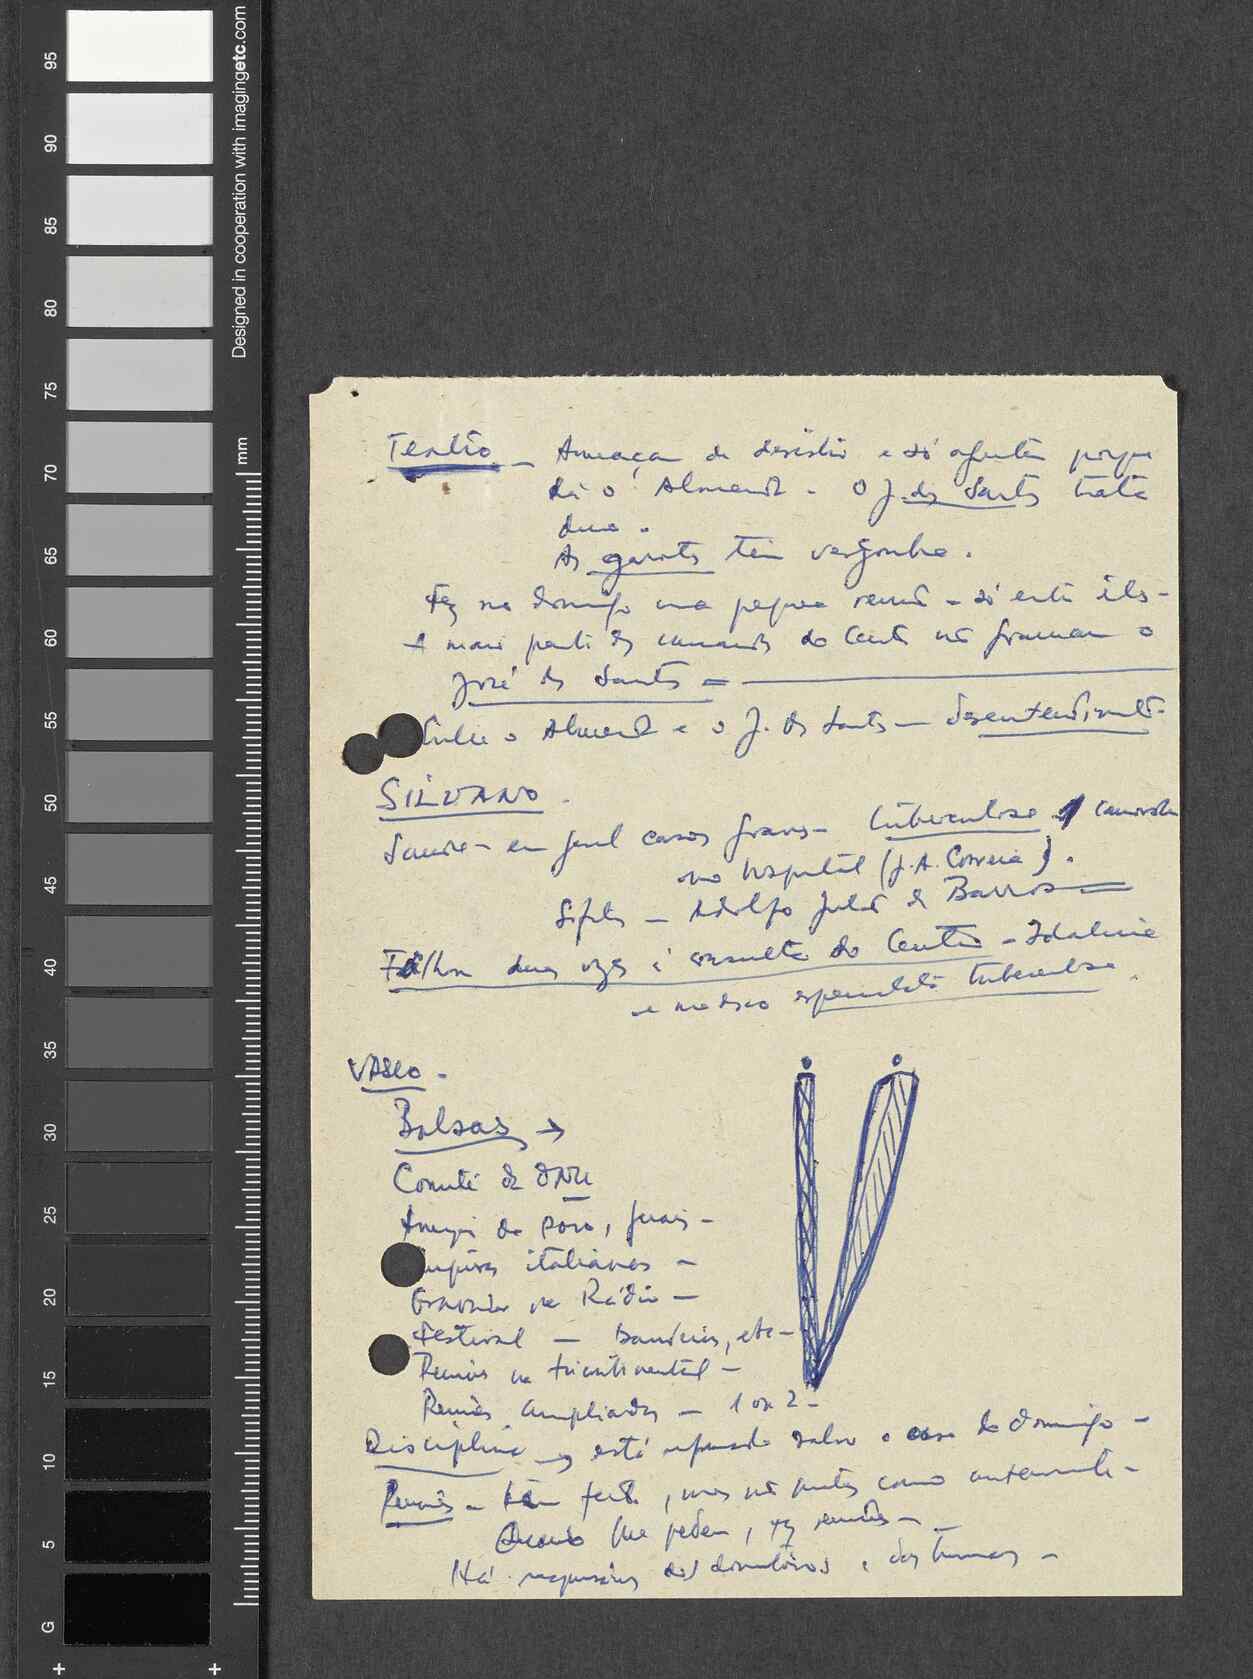 Teatro - Ameaçam de desistir e só aguentam porque
dá o Almeida - O J. dos Santos trata
duro.
As garotas têm vergonha.
Fez no domingo uma pequena reunião - só entre eles -
A maior parte dos camaradas do Centro não gramam o
José dos Santos -
Entre o Almeida e o J. dos Santos - desentendimento -
SILVANO.
Saúde - em geral casos graves - tuberculose
no hospital (J. A. Correia).
Sifilis - Adolfo de Barros
duas vezes consulta do Centro - Idalina
e médico especialista tuberculose.
VASCO -
Bolsas →
Comité da ONU
italianos -
na Rádio -
Festival - bandeiras, etc -
Reunião na tricontinental -
Reuniões ampliadas - 1 ou 2 -
Disciplina → está salvo o caso do domingo -
Reuniões - têm feito, mas não como anteriormente -
Quando lhe pedem, fez reuniões -
Há responsáveis dos dormitórios e das turmas -
Designed in cooperation with imagingetc.com
mm
95
90
85
80
75
70
65
60
55
50
45
40
35
30
25
20
15
10
5
G